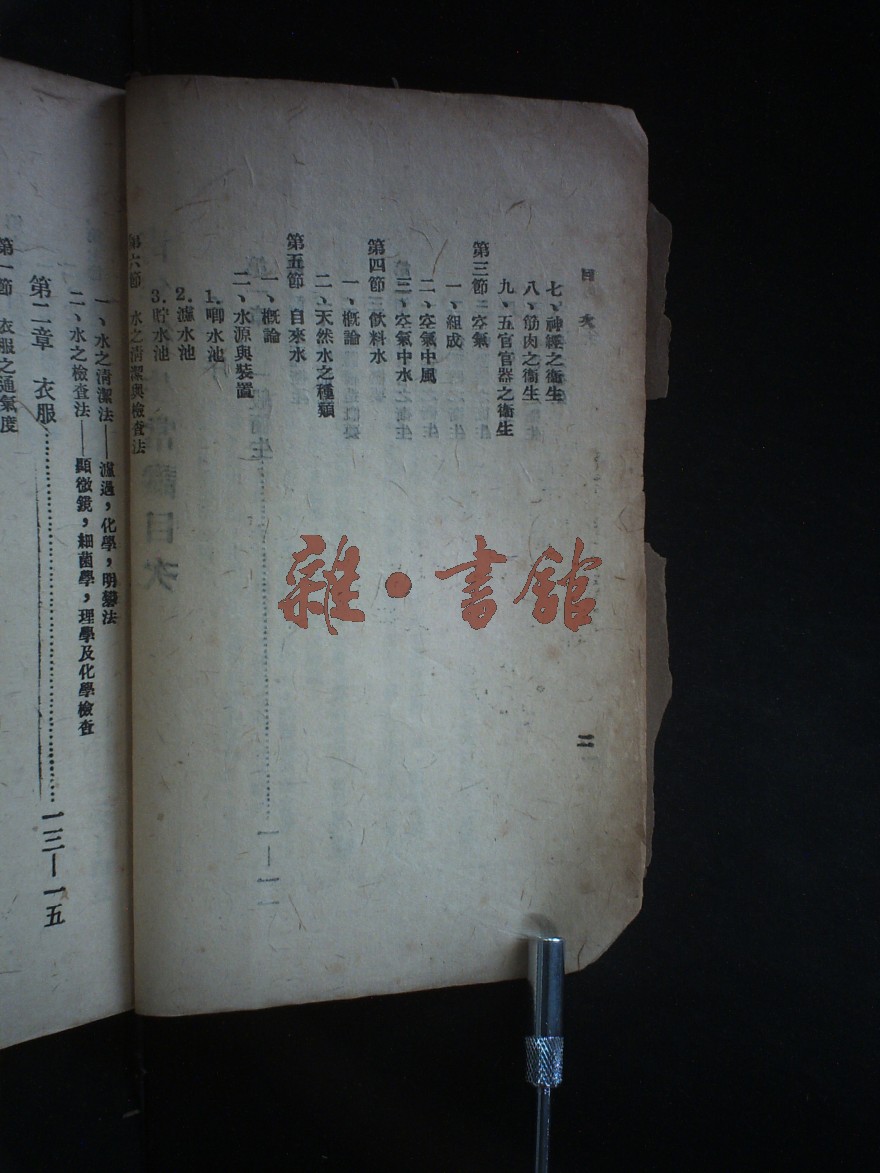 目次
二
七、神經之衞生
八、筋肉之衞生
九、五官官器之衞生
第三節 空氣
一、組成
二、空氣中風
三、空氣中水
第四節 飲料水
一、概論
二、天然水之種類
第五節 自來水
一、概論
二、水源與裝置
1.唧水池
2.濾水池
3.貯水池
第六節 水之清潔與檢查法
一、水之清潔法——濾過，化學，明礬法
二、水之檢查法——顯微鏡，細菌學，理學及化學檢查
第二章 衣服……一三—一五
第一節 衣服之通氣度
雜·書館